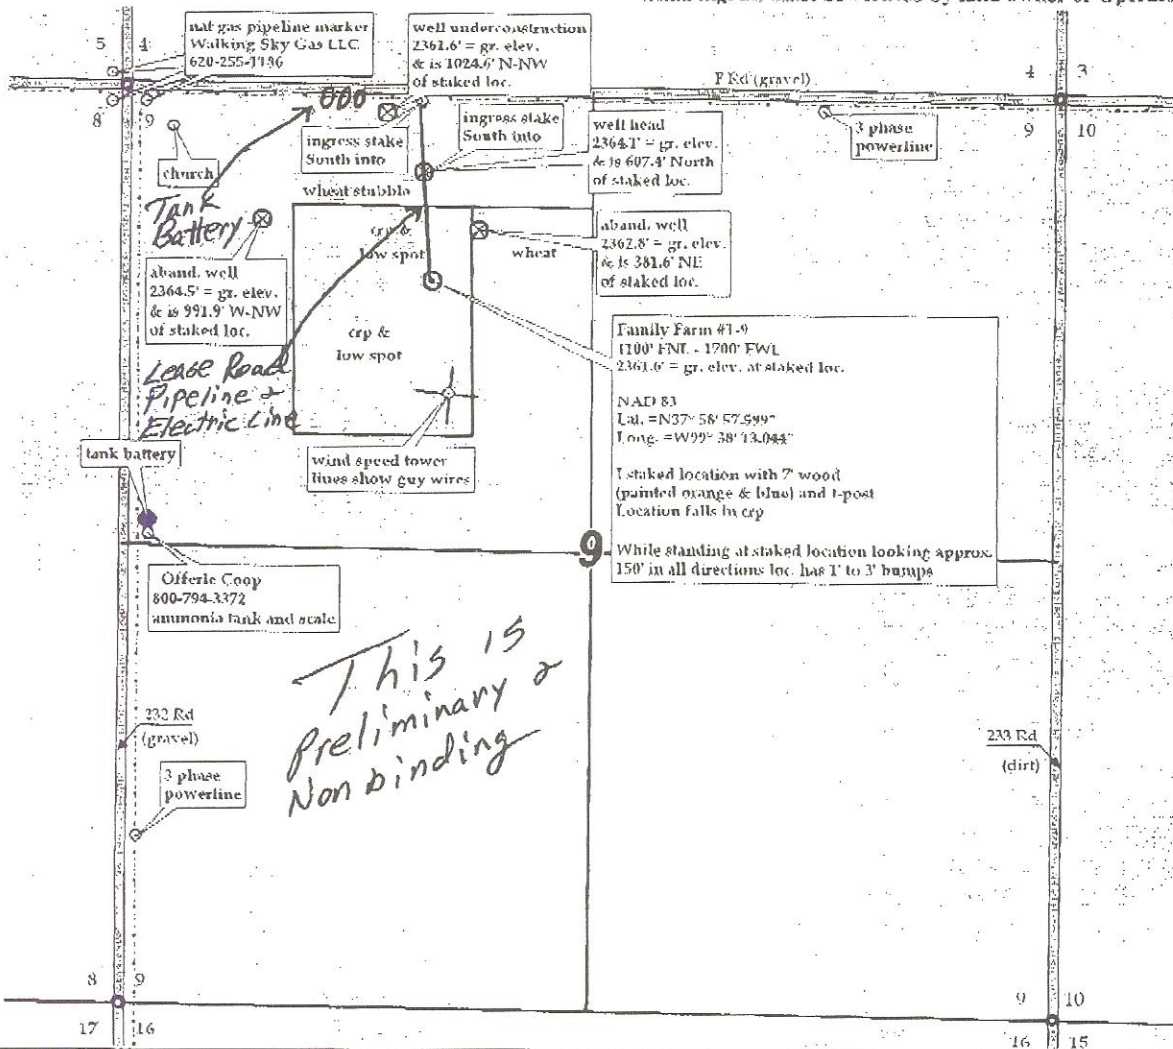 5 4
8 9
nat gas pipeline marker
Walking Sky Gas LLC
620-255-1186
well underconstruction
2361.6' = gr. elev.
& is 1024.6' N-NW
of staked loc.
F Rd (gravel)
4 3
9 10
000
ingress stake
South into
ingress stake
South into
well head
2364.1' = gr. elev.
& is 607.4' North
of staked loc.
3 phase
powerline
church
Tank
Battery
wheat stubble
crp &
low spot
wheat
aband. well
2362.8' = gr. elev.
& is 381.6' NE
of staked loc.
aband. well
2364.5' = gr. elev.
& is 991.9' W-NW
of staked loc.
crp &
low spot
Lease Road
Pipeline &
Electric Line
Family Farm #1-9
1100' FNL - 1700' FWL
2361.6' = gr. elev. at staked loc.
NAD 83
Lat. =N37° 58' 57.599"
Long. =W99° 38' 13.044"
I staked location with 7' wood
(painted orange & blue) and t-post
Location falls in crp
While standing at staked location looking approx.
150' in all directions loc. has 1' to 3' bumps
wind speed tower
lines show guy wires
tank battery
9
Offerle Coop
800-794-3372
ammonia tank and scale
This is
Preliminary &
Non binding
232 Rd
(gravel)
3 phase
powerline
233 Rd
(dirt)
8 9
17 16
9 10
16 15